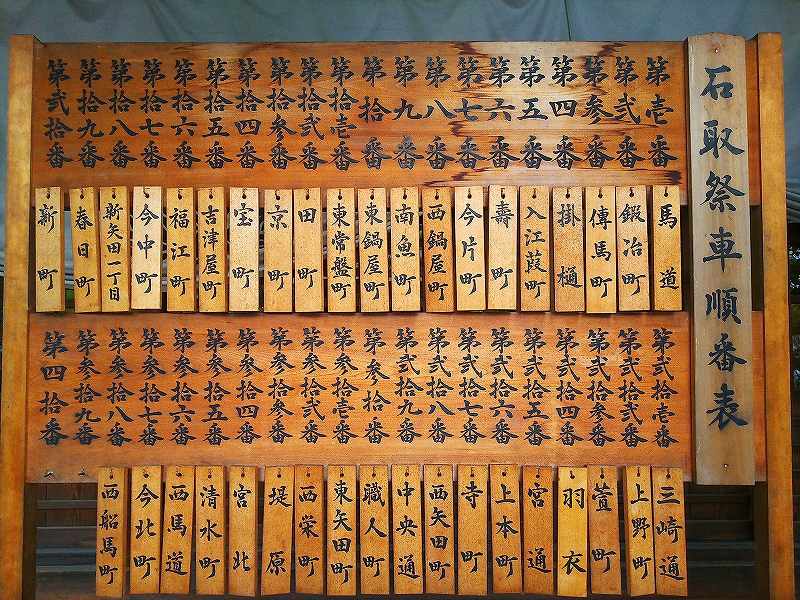 石取祭車順番表
第壱番
第弐番
第参番
第四番
第五番
第六番
第七番
第八番
第九番
第拾番
第拾壱番
第拾弐番
第拾参番
第拾四番
第拾五番
第拾六番
第拾七番
第拾八番
第拾九番
第弐拾番
馬道
鍛冶町
傳馬町
掛樋
入江葭町
壽町
今片町
西鍋屋町
南魚町
東鍋屋町
東常盤町
田町
京町
宝町
吉津屋町
福江町
今中町
新矢田一丁目
春日町
新町
第弐拾壱番
第弐拾弐番
第弐拾参番
第弐拾四番
第弐拾五番
第弐拾六番
第弐拾七番
第弐拾八番
第弐拾九番
第参拾番
第参拾壱番
第参拾弐番
第参拾参番
第参拾四番
第参拾五番
第参拾六番
第参拾七番
第参拾八番
第参拾九番
第四拾番
三崎通
上野町
萱町
羽衣
宮通
上本町
寺町
西矢田町
中央通
職人町
東矢田町
西栄町
堤原
宮北
清水町
西馬道
今北町
西船馬町